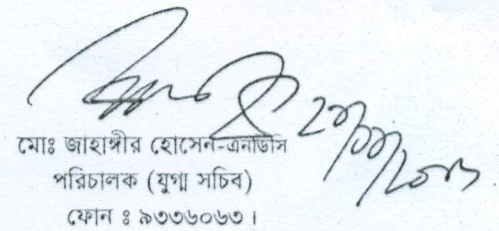 মোঃ জাহাঙ্গীর হোসেন-এনডিসি
পরিচালক (যুগ্ম সচিব)
ফোন ঃ ৯৩৩৬০৬৩।